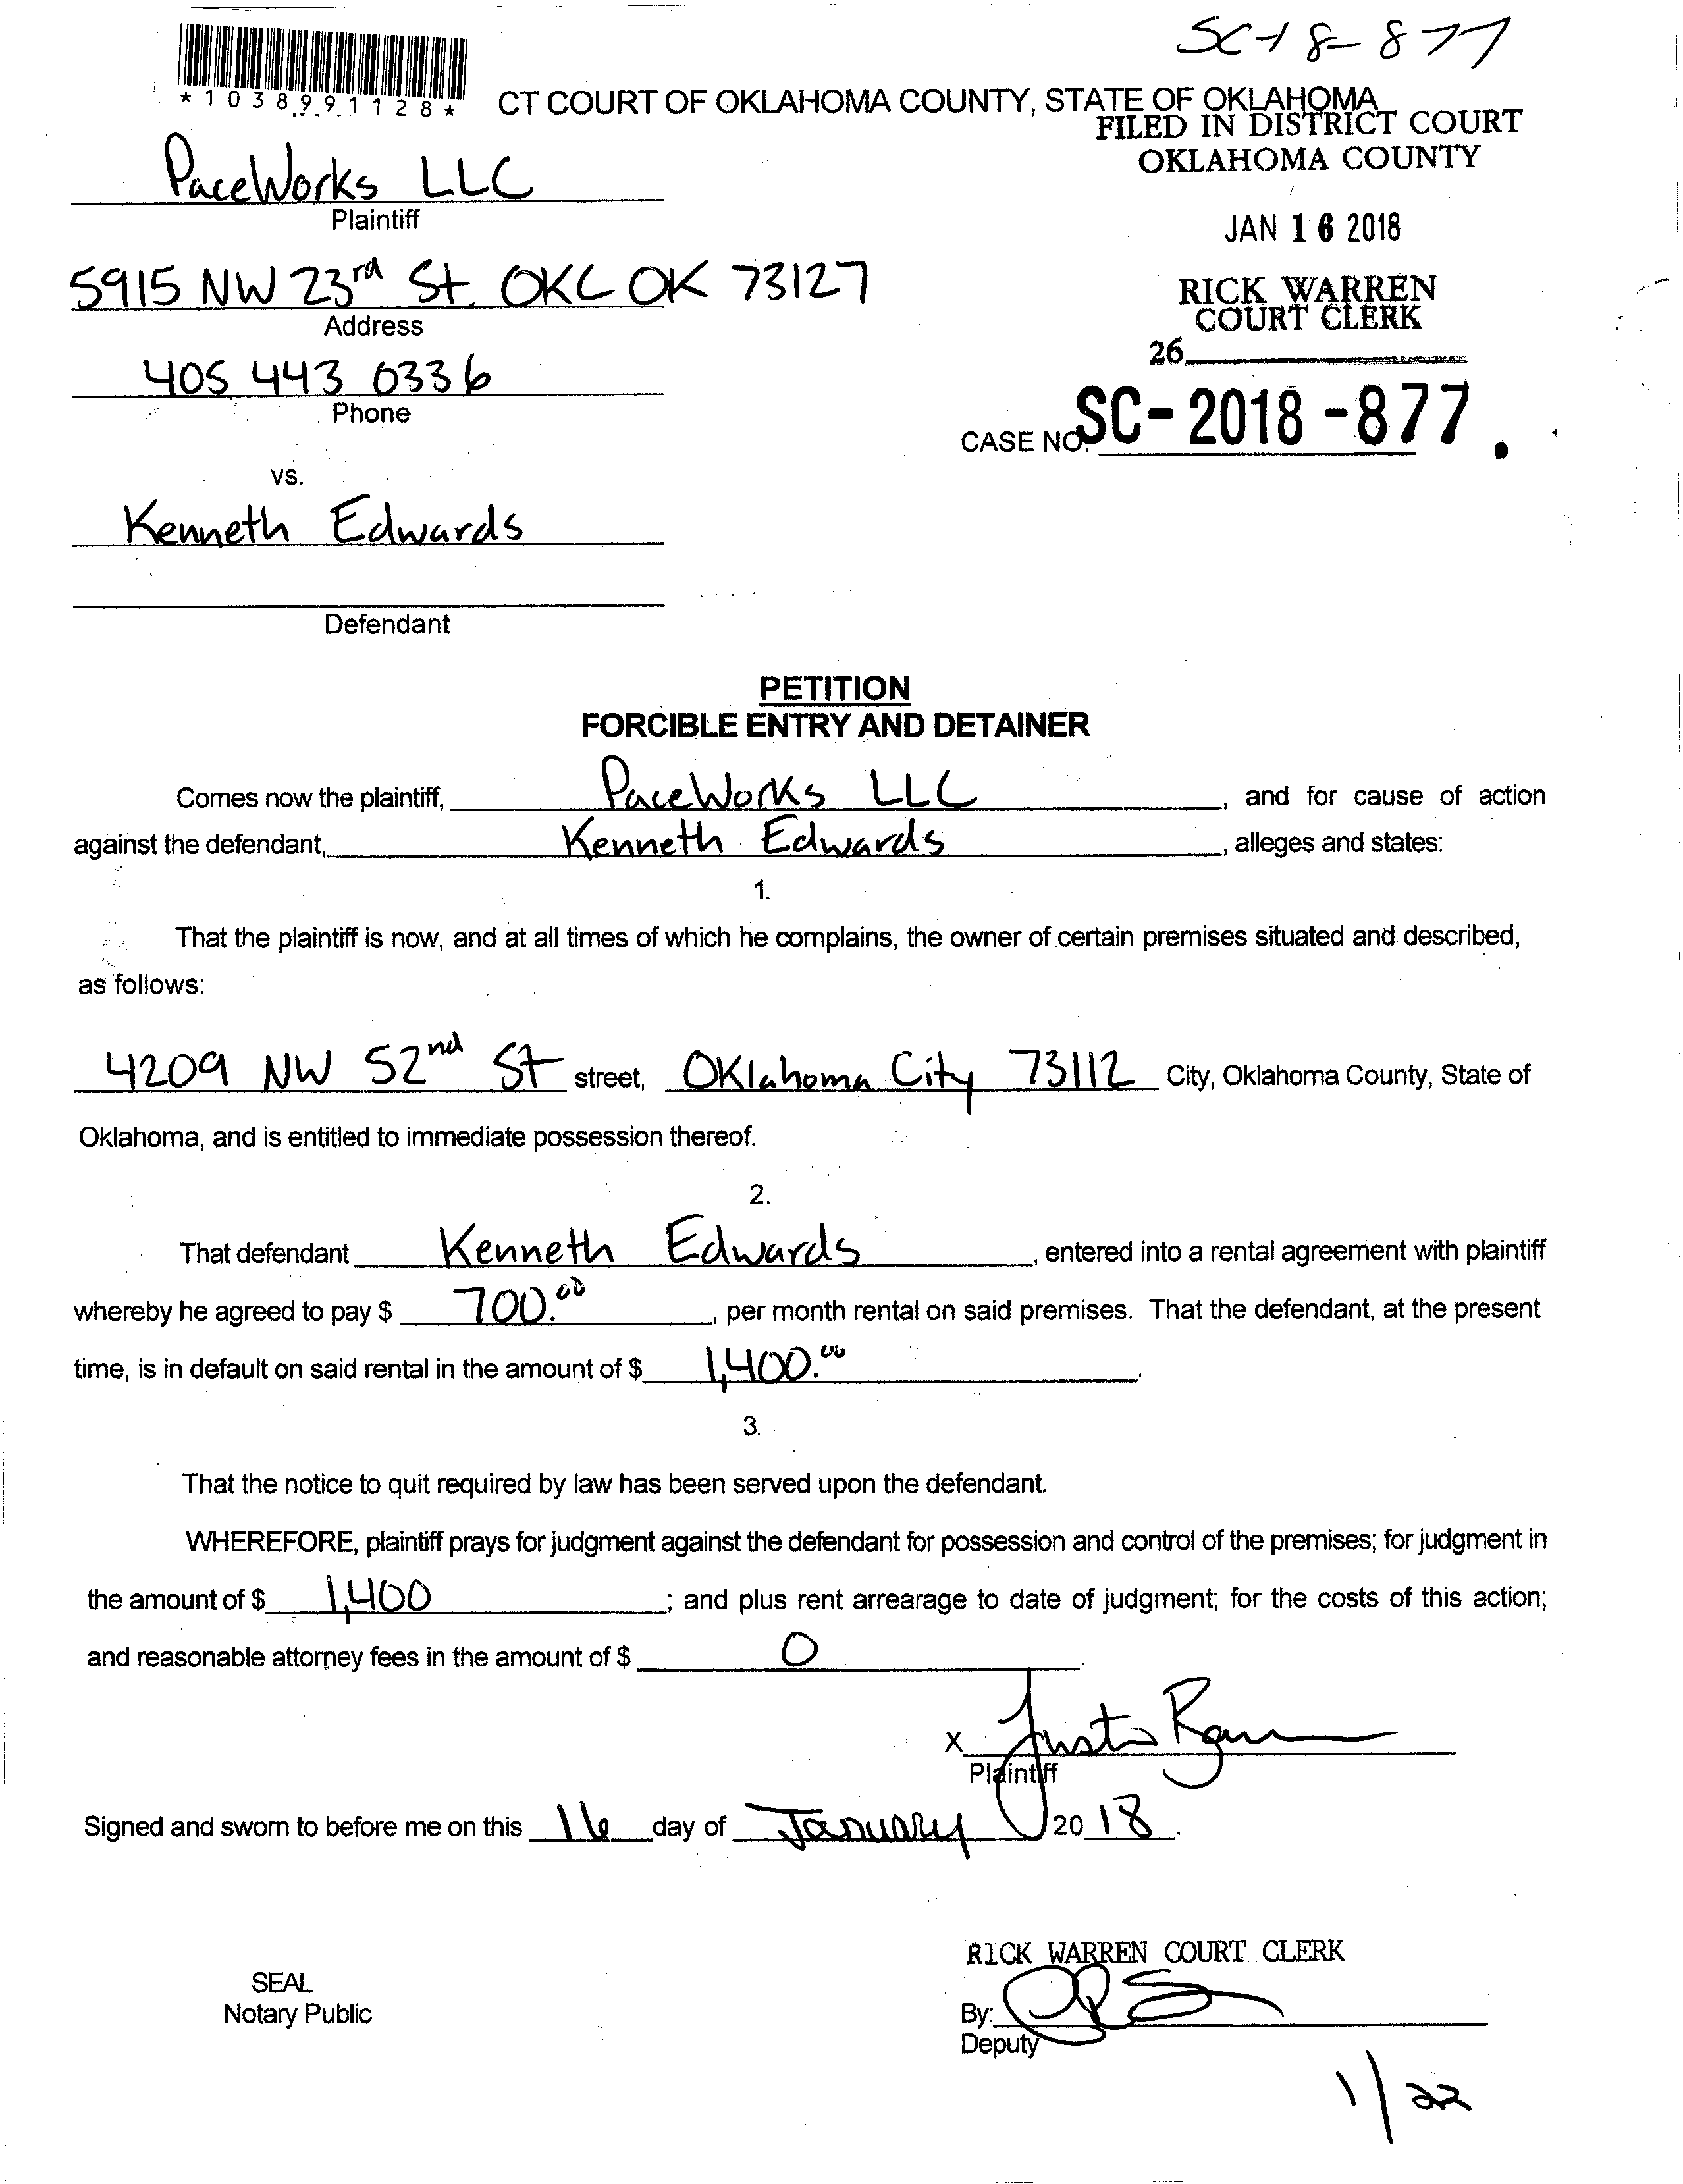 SC-18-877
*1038991128*
CT COURT OF OKLAHOMA COUNTY, STATE OF OKLAHOMA
FILED IN DISTRICT COURT
OKLAHOMA COUNTY
PaceWorks LLC
Plaintiff
JAN 16 2018
5915 NW 23rd St. OKC OK 73127
Address
RICK WARREN
COURT CLERK
26
405 443 0336
Phone
CASE NO. SC-2018-877.
vs.
Kenneth Edwards
Defendant
PETITION
FORCIBLE ENTRY AND DETAINER
Comes now the plaintiff, PaceWorks LLC, and for cause of action
against the defendant, Kenneth Edwards, alleges and states:
1.
That the plaintiff is now, and at all times of which he complains, the owner of certain premises situated and described,
as follows:
4209 NW 52nd St street, Oklahoma City 73112 City, Oklahoma County, State of
Oklahoma, and is entitled to immediate possession thereof.
2.
That defendant Kenneth Edwards, entered into a rental agreement with plaintiff
whereby he agreed to pay $ 700.00, per month rental on said premises. That the defendant, at the present
time, is in default on said rental in the amount of $ 1,400.00.
3.
That the notice to quit required by law has been served upon the defendant.
WHEREFORE, plaintiff prays for judgment against the defendant for possession and control of the premises; for judgment in
the amount of $ 1,400; and plus rent arrearage to date of judgment; for the costs of this action;
and reasonable attorney fees in the amount of $ 0.
X
Plaintiff
Signed and sworn to before me on this 16 day of January 2018.
RICK WARREN COURT CLERK
SEAL
Notary Public
By:
Deputy
1/22